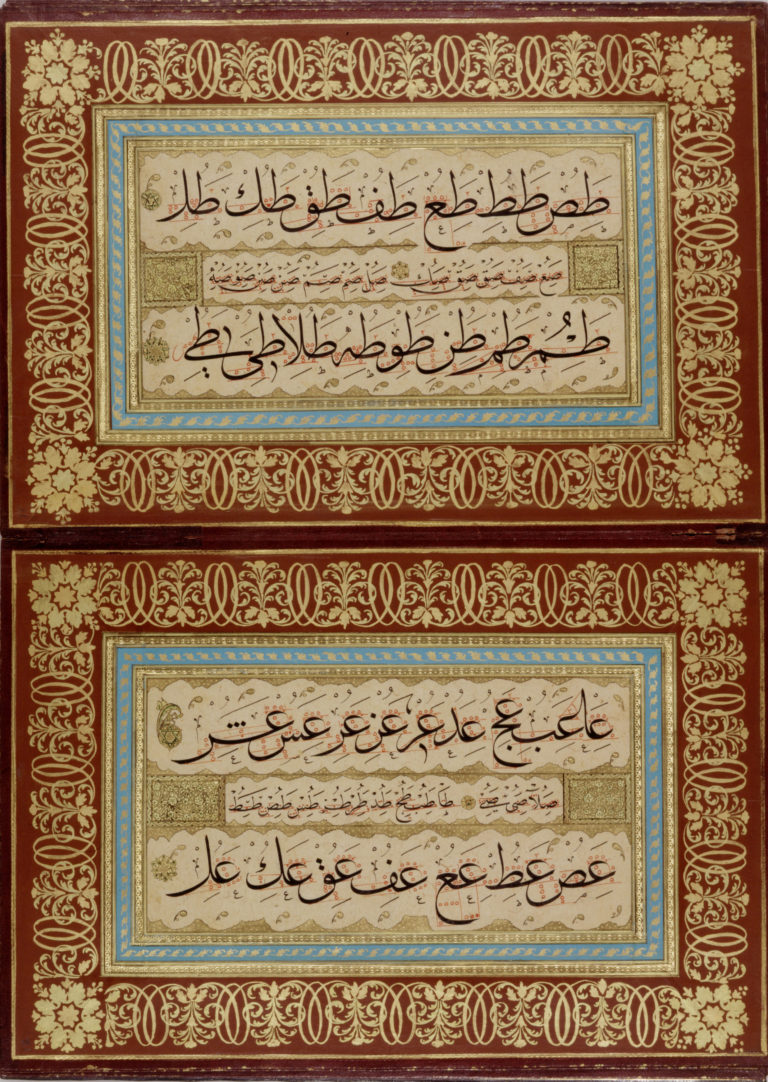 طص طط طع طف طق طك طل
صع صف صق صق صك صل صم صم صن صن صو صه
طم طم طن طو طه طلا طى طے
عا عب عج عد عر عر عر عس عس
صلا صى صے طا طب طج طد طر طر طس طص طط
عص عط عع عف عق عك عل